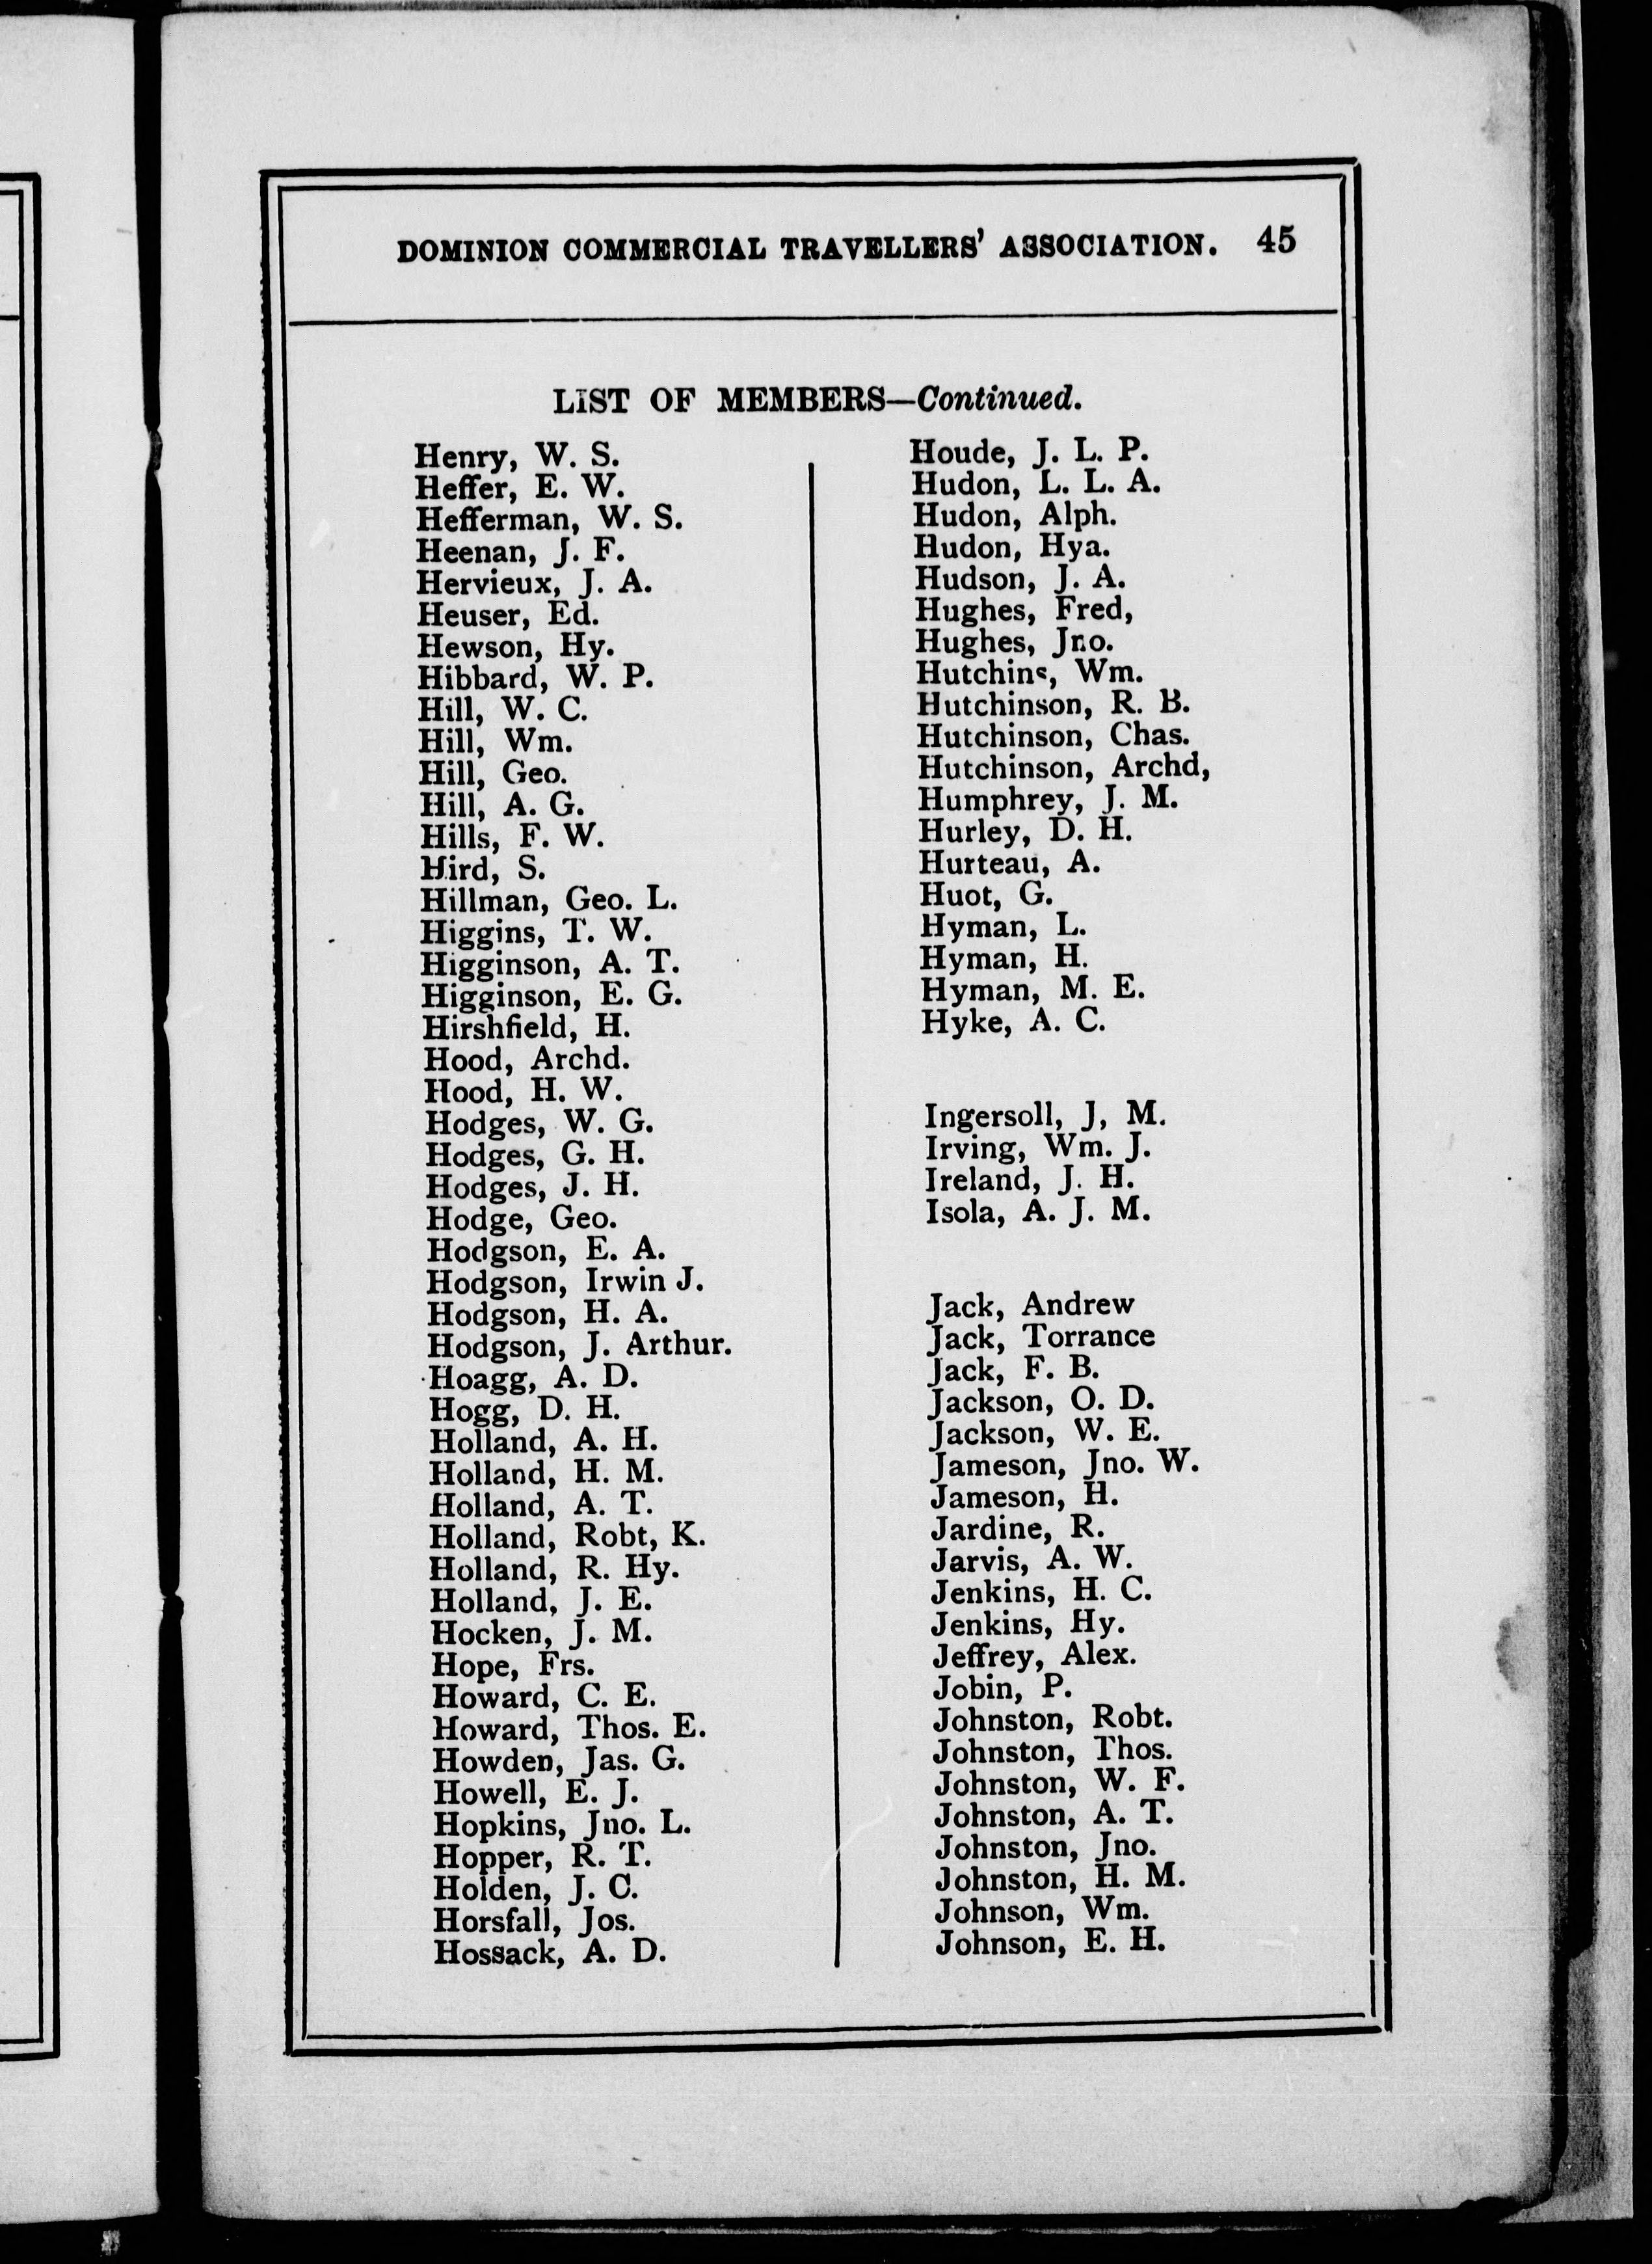 DOMINION COMMERCIAL TRAVELLERS' ASSOCIATION. 45
LIST OF MEMBERS—Continued.
Henry, W. S.
Heffer, E. W.
Hefferman, W. S.
Heenan, J. F.
Hervieux, J. A.
Heuser, Ed.
Hewson, Hy.
Hibbard, W. P.
Hill, W. C.
Hill, Wm.
Hill, Geo.
Hill, A. G.
Hills, F. W.
Hird, S.
Hillman, Geo. L.
Higgins, T. W.
Higginson, A. T.
Higginson, E. G.
Hirshfield, H.
Hood, Archd.
Hood, H. W.
Hodges, W. G.
Hodges, G. H.
Hodges, J. H.
Hodge, Geo.
Hodgson, E. A.
Hodgson, Irwin J.
Hodgson, H. A.
Hodgson, J. Arthur.
Hoagg, A. D.
Hogg, D. H.
Holland, A. H.
Holland, H. M.
Holland, A. T.
Holland, Robt, K.
Holland, R. Hy.
Holland, J. E.
Hocken, J. M.
Hope, Frs.
Howard, C. E.
Howard, Thos. E.
Howden, Jas. G.
Howell, E. J.
Hopkins, Jno. L.
Hopper, R. T.
Holden, J. C.
Horsfall, Jos.
Hossack, A. D.
Houde, J. L. P.
Hudon, L. L. A.
Hudon, Alph.
Hudon, Hya.
Hudson, J. A.
Hughes, Fred,
Hughes, Jno.
Hutchins, Wm.
Hutchinson, R. B.
Hutchinson, Chas.
Hutchinson, Archd,
Humphrey, J. M.
Hurley, D. H.
Hurteau, A.
Huot, G.
Hyman, L.
Hyman, H.
Hyman, M. E.
Hyke, A. C.
Ingersoll, J, M.
Irving, Wm. J.
Ireland, J. H.
Isola, A. J. M.
Jack, Andrew
Jack, Torrance
Jack, F. B.
Jackson, O. D.
Jackson, W. E.
Jameson, Jno. W.
Jameson, H.
Jardine, R.
Jarvis, A. W.
Jenkins, H. C.
Jenkins, Hy.
Jeffrey, Alex.
Jobin, P.
Johnston, Robt.
Johnston, Thos.
Johnston, W. F.
Johnston, A. T.
Johnston, Jno.
Johnston, H. M.
Johnson, Wm.
Johnson, E. H.